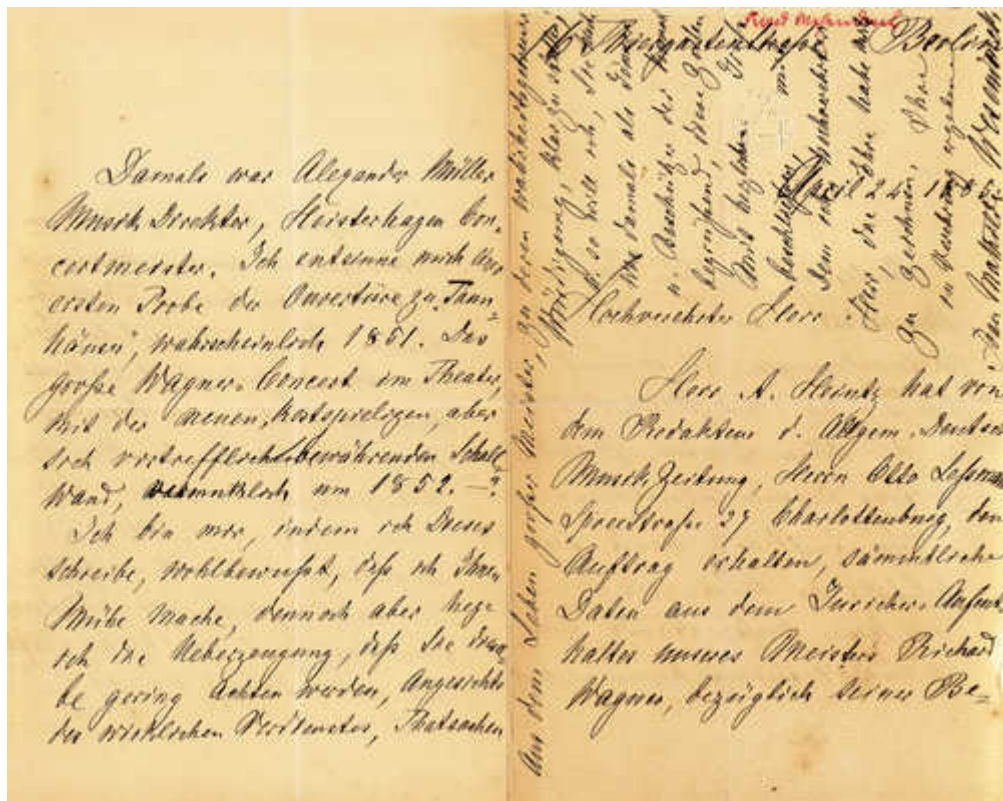 Damals war Alexander Müller
Musik Direktor, Heisterhagen Con-
certmeister. Ich entsinne mich der
ersten Probe der Ouvertüre zu "Tann-
häuser", wahrscheinlich 1851. Das
große Wagner-Concert im Theater,
mit der neuen, kostspieligen, aber
sich vortrefflich bewährenden Schall
Wand, vermuthlich um 1852. —?
Ich bin mir, indem ich Dieses
schreibe, wohlbewußt, daß ich Ihnen
Mühe mache, dennoch aber hege
ich die Ueberzeugung, daß Sie diesel-
be gering achten werden, Angesichts
des wirklichen Verdienstes, Thatsachen
aus dem Leben großer Meister, zu deren wahrheitsgetreuen
Würdigung, klar zu
u. so will ich, Sie
damals als
u. Beschützer der
begrüßend, Ihnen
Mit
dem
Herr, die Ehre habe
zu zeichnen, Ihre
in Verehrung ergebene
Mathilde Wesendonck
Thiergartenstraße Berlin
April 24. 1885.
Hochverehrter Herr.
Herr A. Heintz hat von
dem Redakteur d. Allgem. Deutschen
Musik Zeitung, Herrn Otto Lessmann
Spreestraße 27 Charlottenburg, den
Auftrag erhalten, sämmtliche
Daten aus dem Züricher-Aufent
haltes unseres Meisters Richard
Wagner, bezüglich seiner Be-